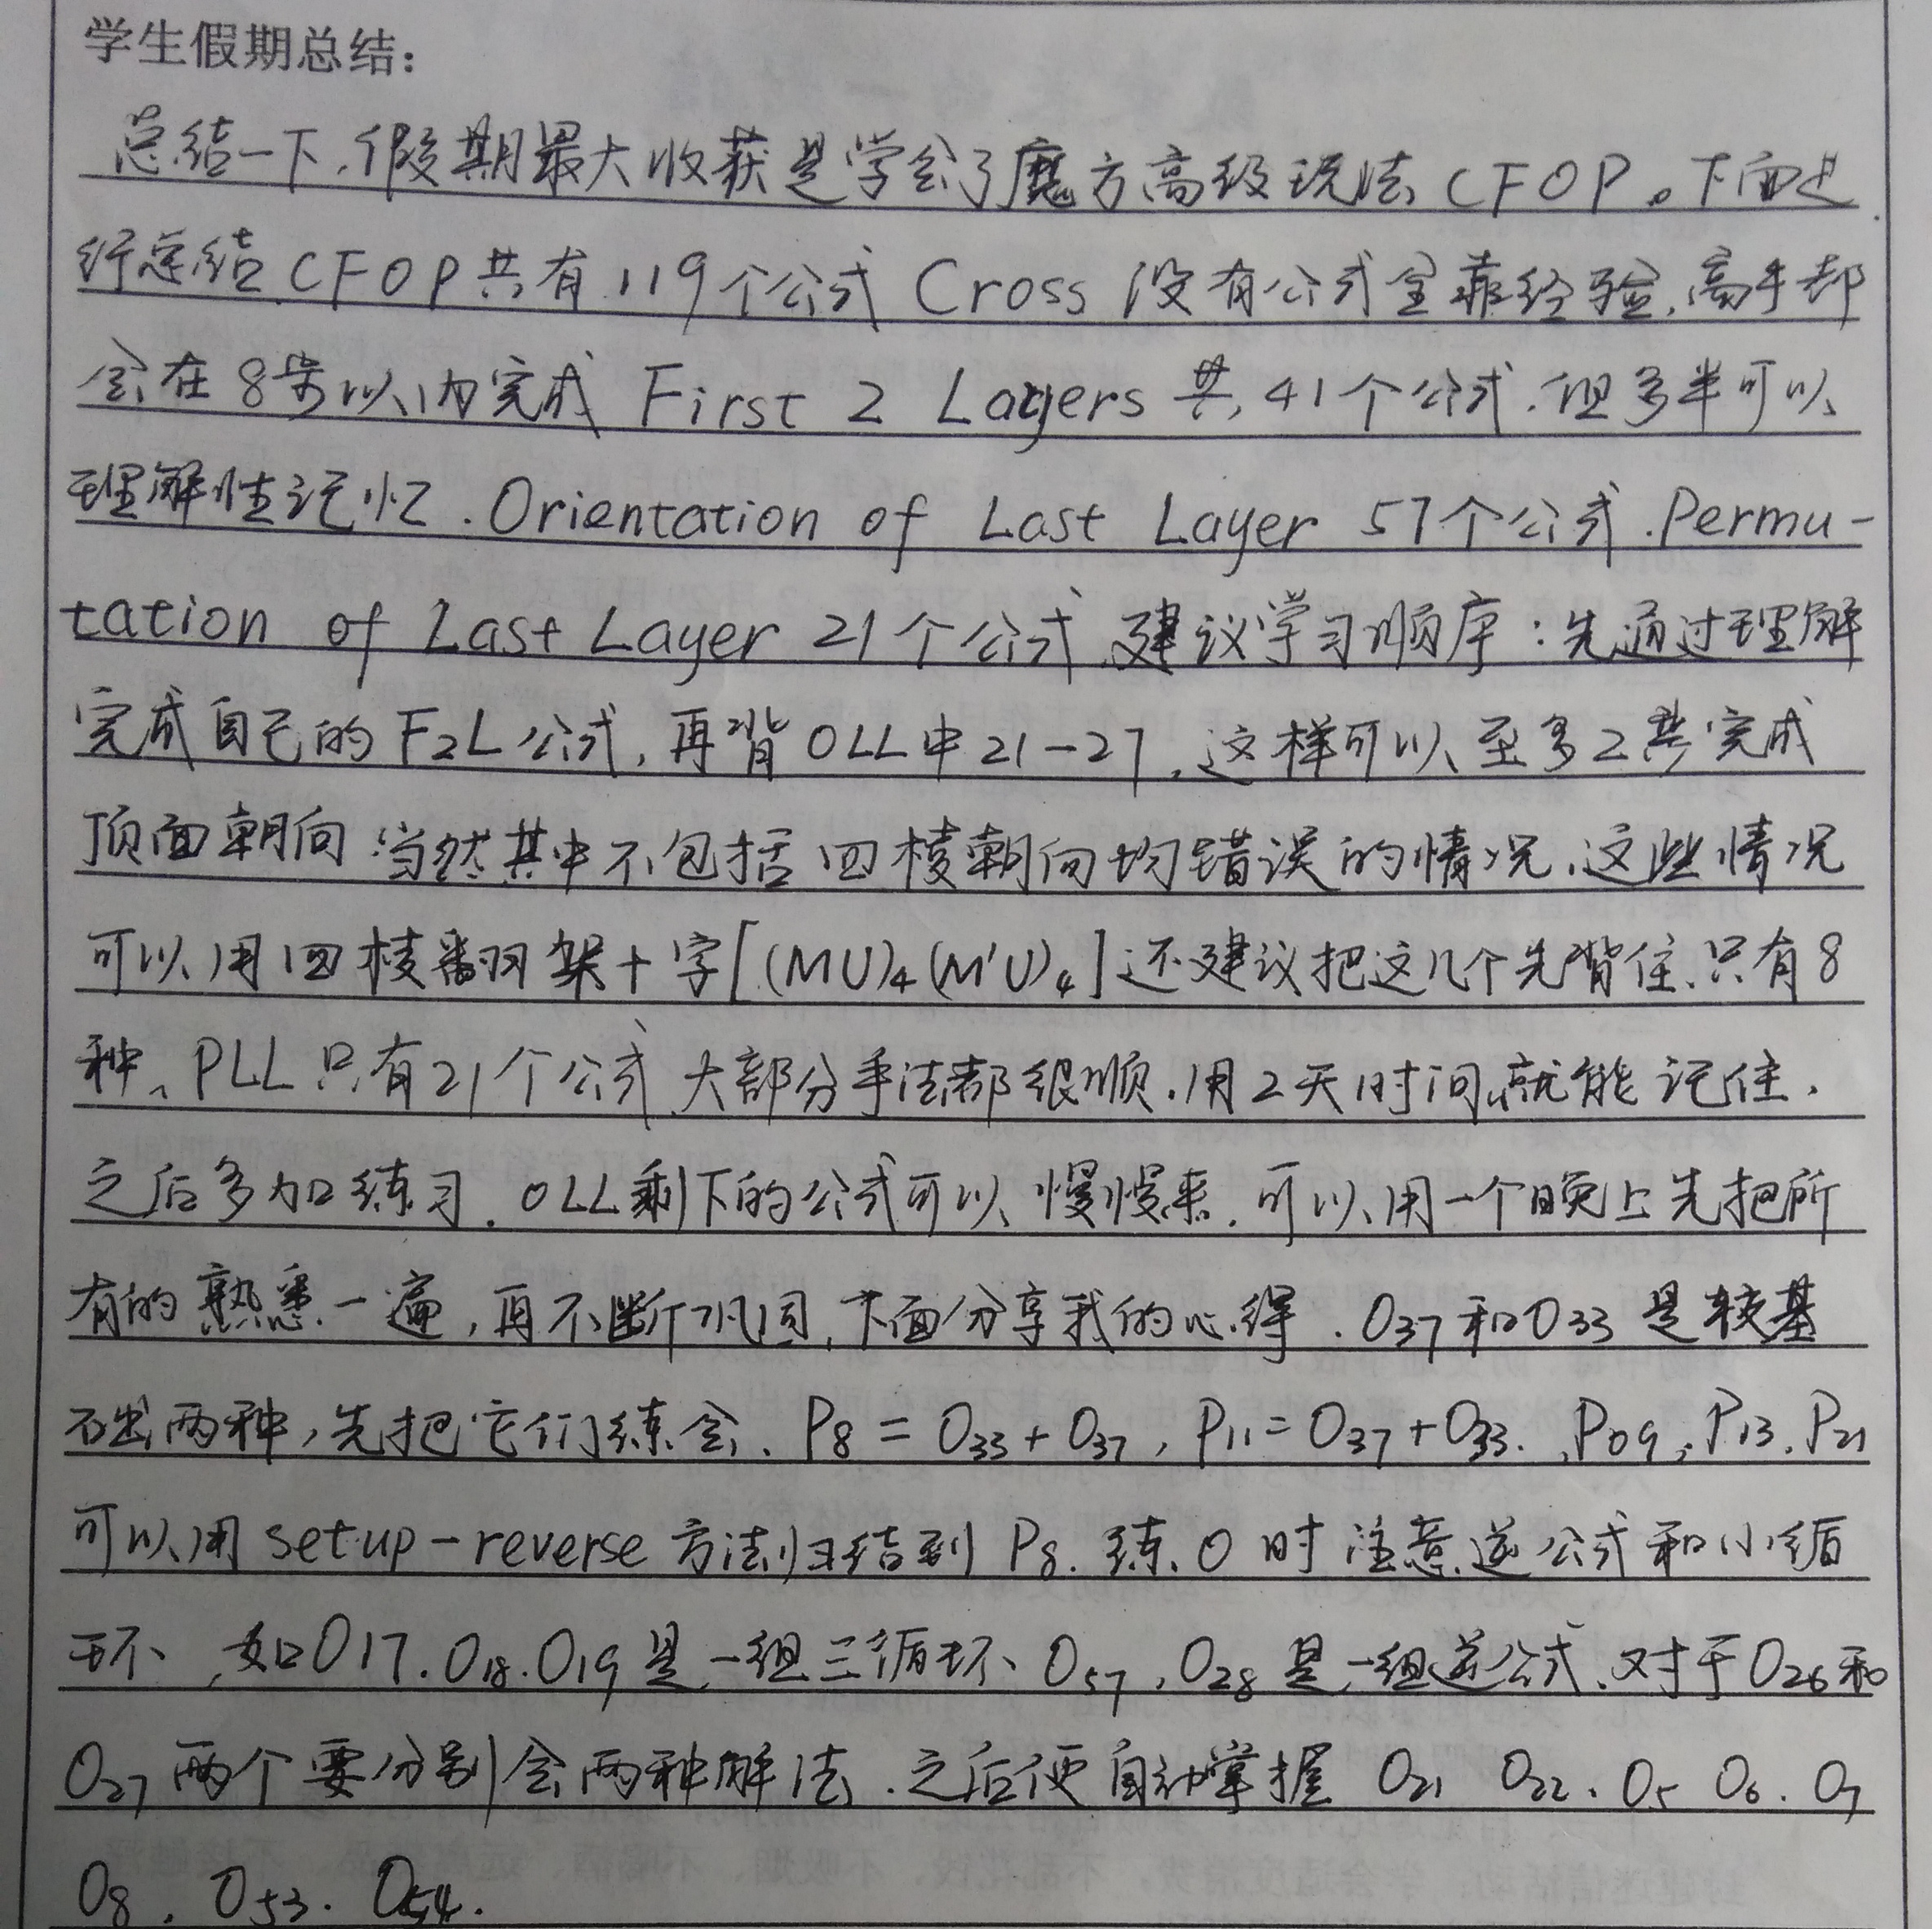 学生假期总结：
总结一下，假期最大收获是学会了魔方高级玩法 CFOP。下面进
行总结 CFOP共有119个公式 Cross 没有公式全靠经验，高手都
会在8步以内完成 First 2 Layers 共41个公式，但多半可以
理解性记忆．Orientation of Last Layer 57个公式．Permu-
tation of Last Layer 21个公式 建议学习顺序：先通过理解
完成自己的F2L公式，再背OLL中21-27，这样可以至多2步完成
顶面朝向 当然其中不包括四棱朝向均错误的情况，这些情况
可以用四棱翻羽架十字[(MU)₄(M'U)₄]还建议把这几个先背住，只有8
种、PLL只有21个公式 大部分手法都很顺，用2天时间就能记住，
之后多加练习．OLL剩下的公式可以慢慢来，可以用一个晚上先把所
有的熟悉一遍，再不断巩固，下面分享我的心得．O37和O33是较基
础两种，先把它们练会．P8=O33+O37，P11=O37+O33．P09，P13．P21
可以用setup-reverse方法归结到P8．练O时注意逆公式和小循
环，如O17．O18．O19是一组三循环、O57，O28是一组逆公式、对于O26和
O27两个要分别会两种解法．之后便自动掌握 O21 O22．O5 O6．O7
O8．O53．O54．